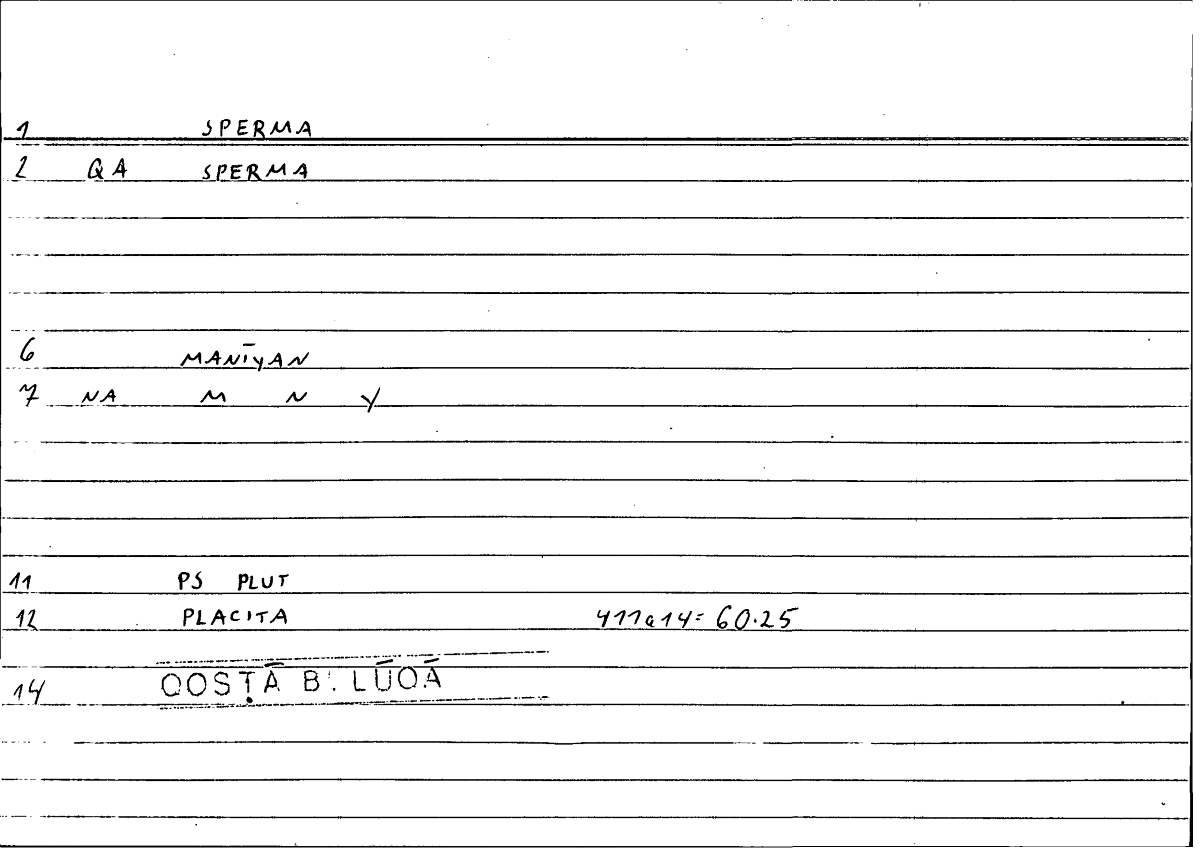 1 SPERMA
2 QA SPERMA
6 MANĪYAN
7 NA M N Y
11 PS PLUT
12 PLACITA 411a14= 60.25
14 QOSṬĀ B. LŪQĀ